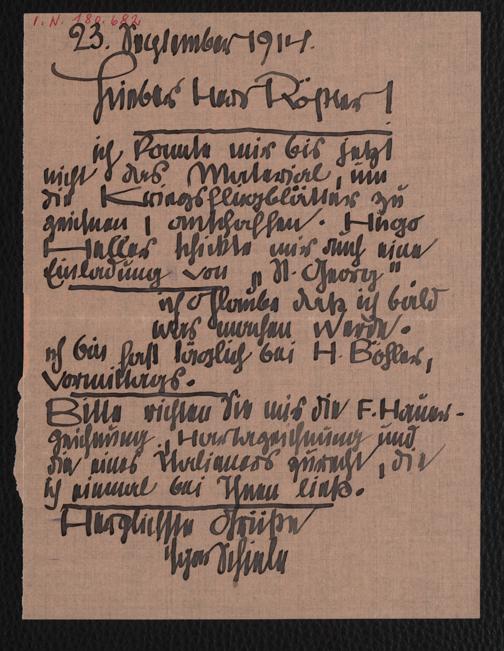 I. N. 180.682
23. September 1914.
Lieber Herr Rößler!
ich konnte mir bis jetzt
nicht das Material, um
die Kriegsflugblätter zu
zeichnen, anschaffen. Hugo
Heller schickte mir auch eine
Einladung von „St. Georg“.
ich glaube daß ich bald
was machen werde.
ich bin fast täglich bei H. Böhler,
Vormittags.
Bitte richten Sie mir die F. Hauer-
zeichnung, Hartazeichnung und
die eines Italieners zurecht, die
ich einmal bei Ihnen ließ.
Herzlichste Grüße
Egon Schiele